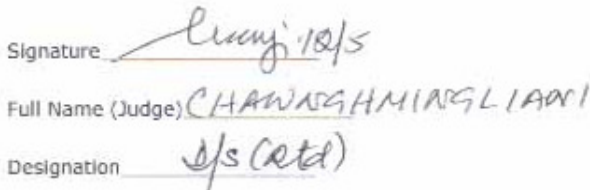 Signature 18/5
Full Name (Judge) CHAWNGHMINGLIANI
Designation D/S (Rtd)